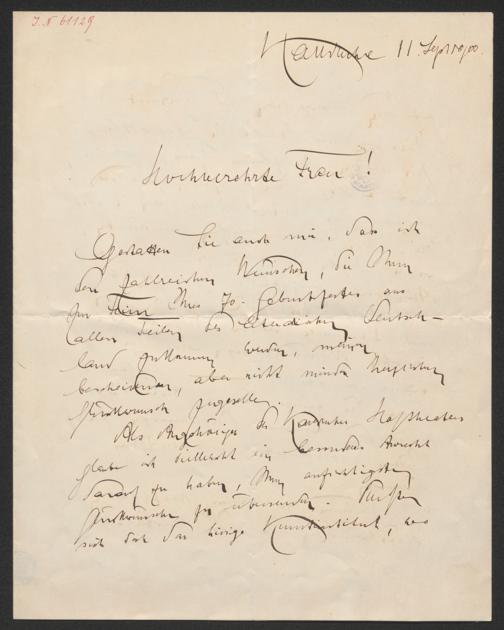 I.N 61129
Karlsruhe 11. Sept. 1900.
Hochverehrte Frau!
Gestatten Sie auch mir, dass ich
den zahlreichen Wünschen, die Ihnen
zur Feier Ihres 70. Geburtsfestes aus
allen Teilen des literarischen Deutsch-
land zukommen werden, meinen
bescheidenen, aber nicht minder herzlichen
Glückwunsch zugeselle.
Als Angehöriger des Karlsruher Hoftheaters
glaube ich vielleicht ein besonderes Anrecht
darauf zu haben, Ihnen aufrichtigsten
Glückwünsche zu übersenden.
sich doch das hiesige Kunstinstitut, wo